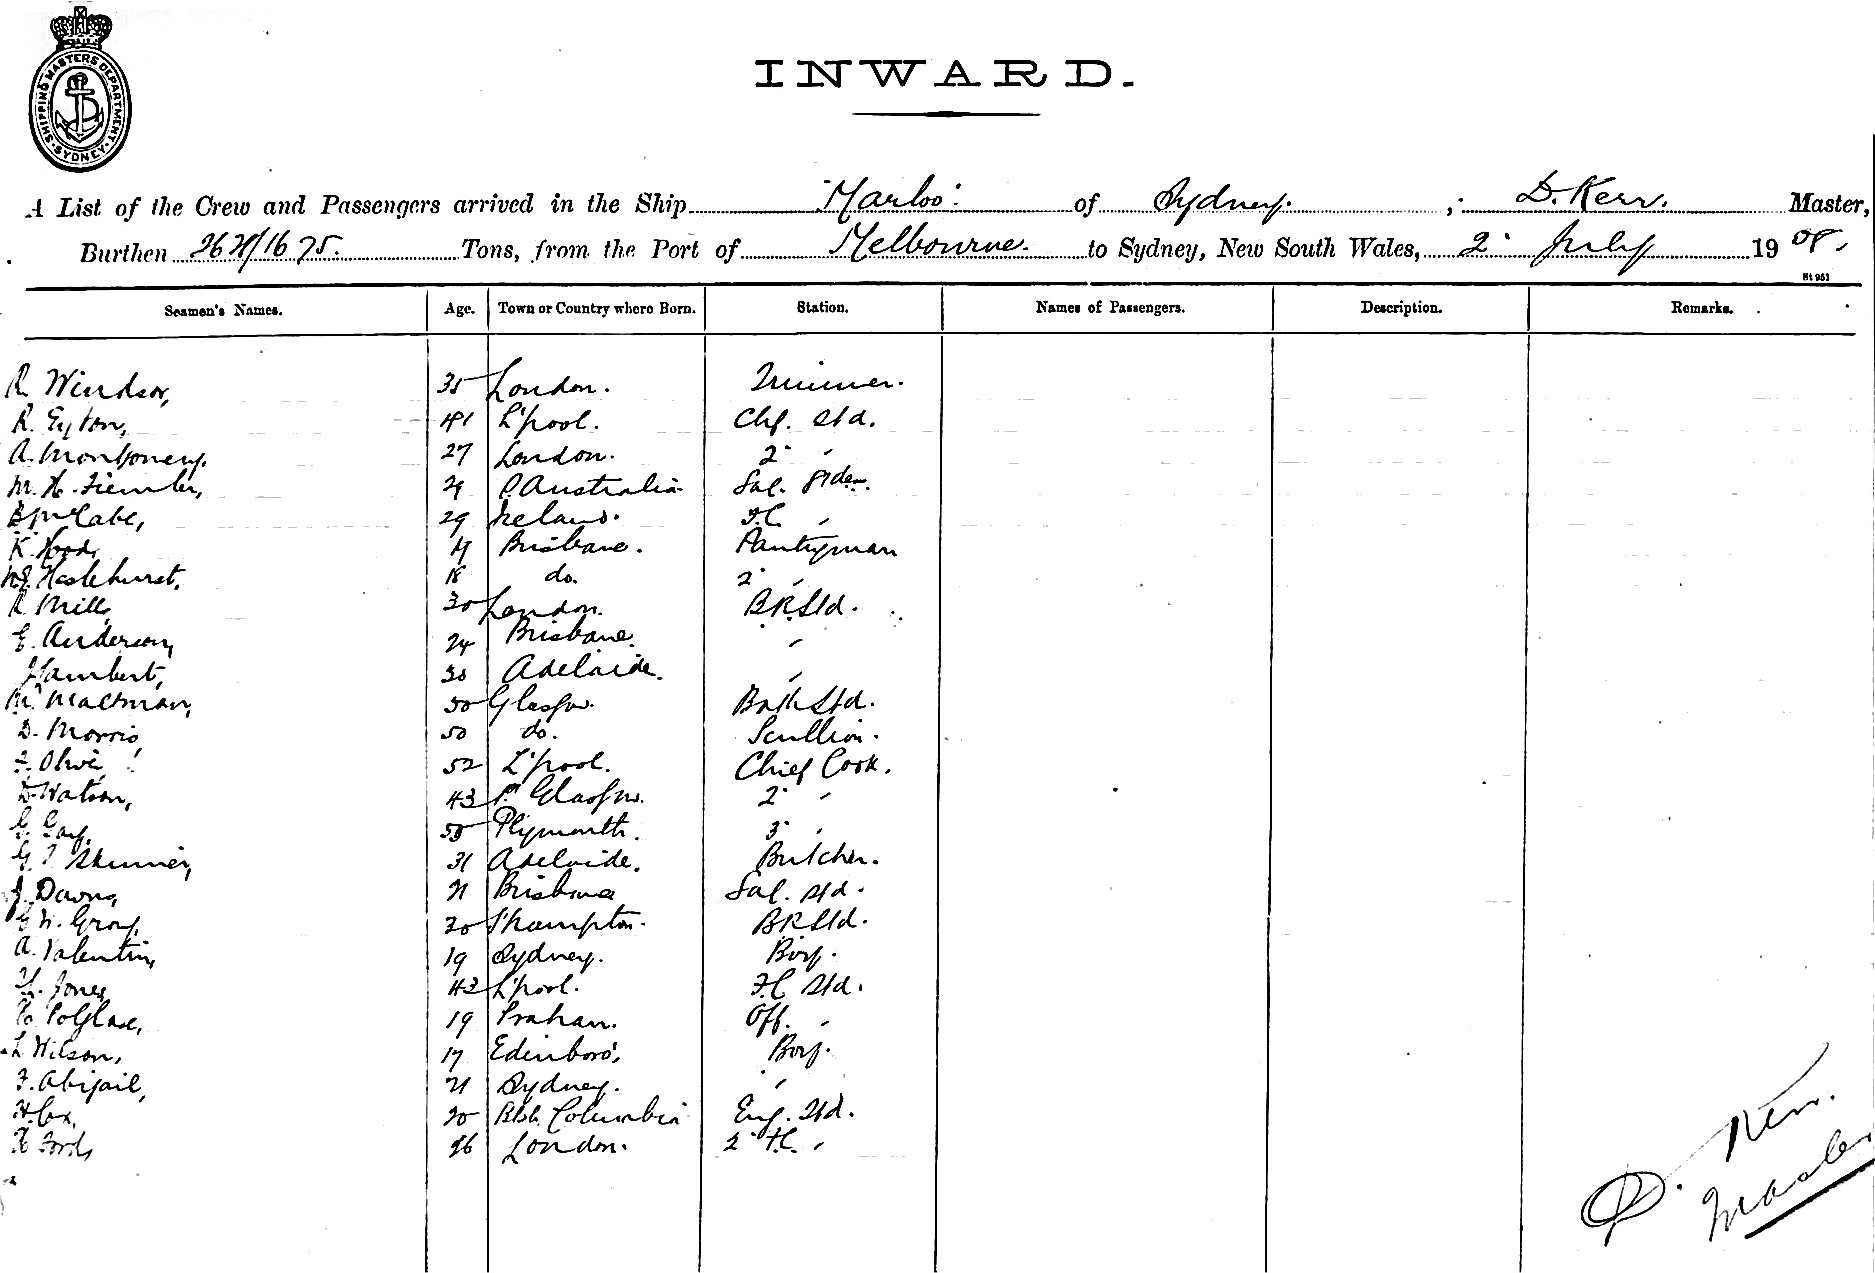 SHIPPING MASTERS DEPARTMENT SYDNEY
INWARD.
A List of the Crew and Passengers arrived in the Ship "Marloo" of Sydney. ; D. Kerr. Master,
Burthen Tons, from the Port of Melbourne. to Sydney, New South Wales, 2 July 1908.
Bt 951
Seamen's Names. Age. Town or Country where Born. Station. Names of Passengers. Description. Remarks.
R. Windsor, 35 London. Trimmer.
R. Eyton, L'pool. Chf. Std.
A. Montgomery. 27 London. 2 "
M. H. Australia Sal. Stdess.
B McCabe, 29 Ireland. F.C. "
K. Hood, Brisbane. Pantryman
Haslehurst, 18 do. 2 "
R. Mills, 30 London. B.R. Std.
E. Anderson, 24 Brisbane. "
Lambert, 30 Adelaide. "
50 Glasgow. Bath Std.
D. Morris 50 do. Scullion.
52 L'pool. Chief Cook.
D. Watson, 43 Glasgow. 2 "
Gay, Plymouth. 3 "
Skinner, 31 Adelaide. Butcher.
J. Downs, 21 Brisbane Sal. Std.
Gray, 30 S'hampton. B.R. Std.
A. Valentin, 19 Sydney. Boy.
Jones, 43 L'pool. F.C. Std.
PoGlase, 19 Prahan. Off. "
L Wilson, 17 Edinboro', Boy.
F. Abigail, 21 Sydney. "
H. Cox, 20 Columbia Eng. Std.
H Ford, 26 London. 2 F.C. "
D. Kerr.
Master